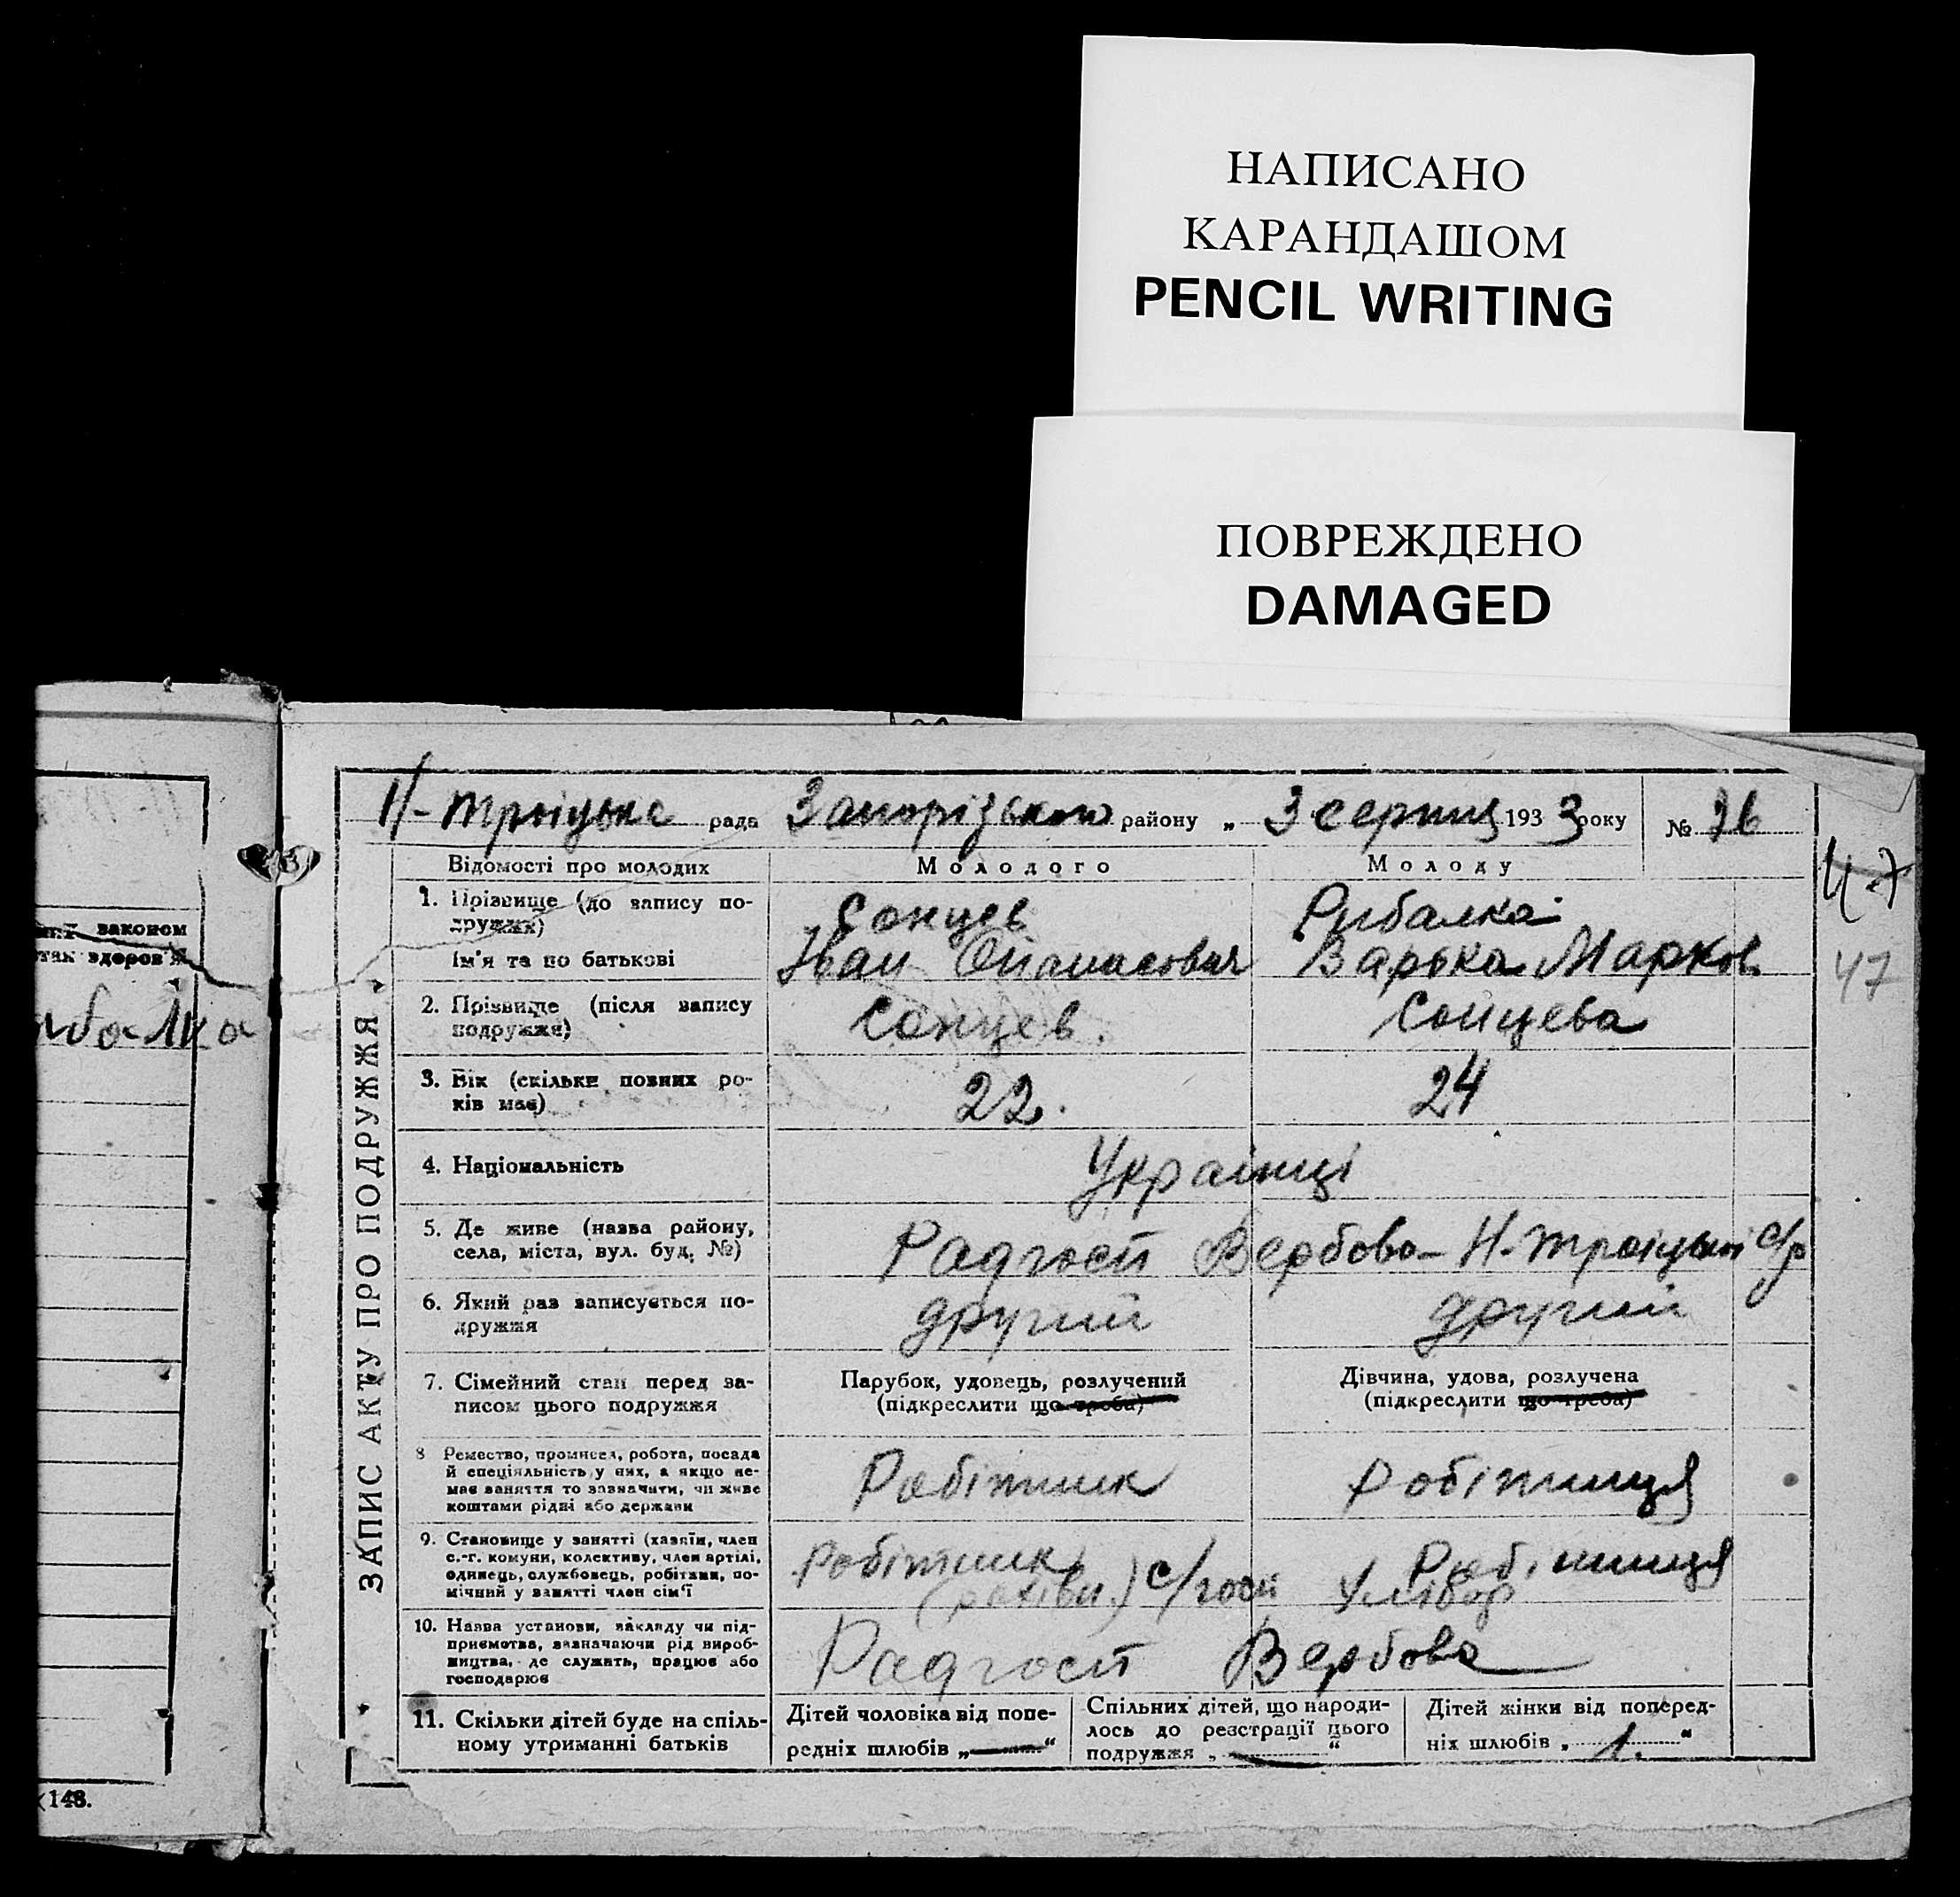 НАПИСАНО
КАРАНДАШОМ
PENCIL WRITING
ПОВРЕЖДЕНО
DAMAGED
законом
так здоров'я
ибалка
148.
Н-Троіцьке рада Запорізького району „ 3 серпня 1933 року № 76
47
47
ЗАПИС АКТУ ПРО ПОДРУЖЖЯ
Відомості про молодих Молодого Молоду
1. Прізвище (до запису по-
дружжя) Сонцев Рибалка
Ім'я та по батькові Іван Опанасович Варька Марков.
2. Прізвище (після запису
подружжя) Сонцев. Сонцева
3. Вік (скільки повних ро-
ків має) 22. 24
4. Національність Українці
5. Де живе (назва району,
села, міста, вул. буд. №) Радгосп Вербова- Н-Троіцької с/р
6. Який раз записується по-
дружжя другий другий
7. Сімейний стан перед за-
писом цього подружжя
Парубок, удовець, розлучений
(підкреслити що треба)
Дівчина, удова, розлучена
(підкреслити що треба)
8 Ремество, промисел, робота, посада
й спеціяльність у них, а якщо не-
має заняття то зазначити, чи живе
коштами рідні або держави
Робітник Робітниця
9. Становище у занятті (хазяїн, член
с.-г. комуни, колективу, член артілі,
одинець, службовець, робітник, по-
мічний у занятті член сім'ї
Робітник с/госп Робітниця
10. Назва установи, закладу чи під-
приємства, зазначаючи рід вироб-
ництва, де служить, працює або
господарює
Радгосп Вербова
11. Скільки дітей буде на спіль-
ному утриманні батьків
Дітей чоловіка від попе-
редніх шлюбів „—“
Спільних дітей, що народи-
лось до реєстрації цього
подружжя „—“
Дітей жінки від поперед-
ніх шлюбів „ 1. “